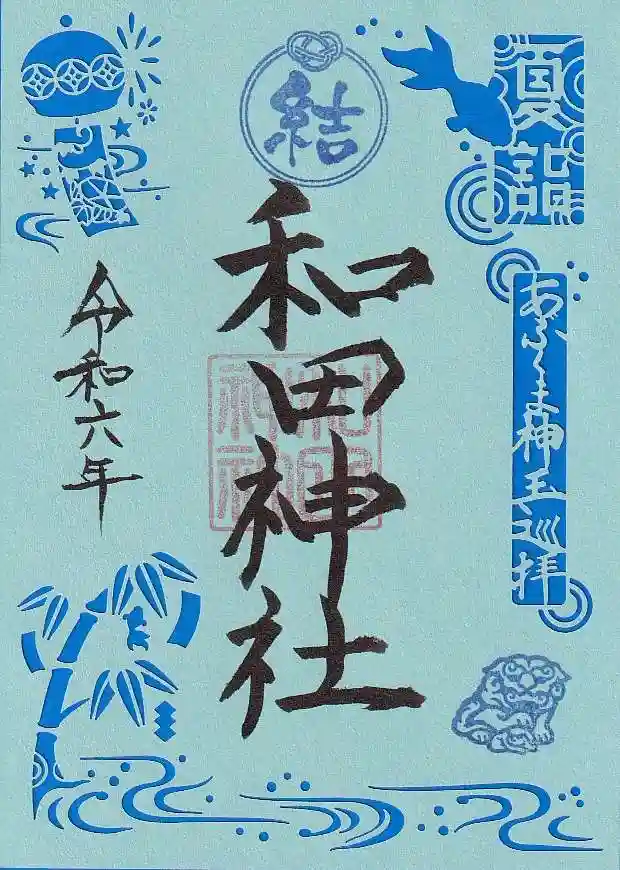 夏詣
結
あづま神玉巡拝
和田神社
和田神社
令和六年